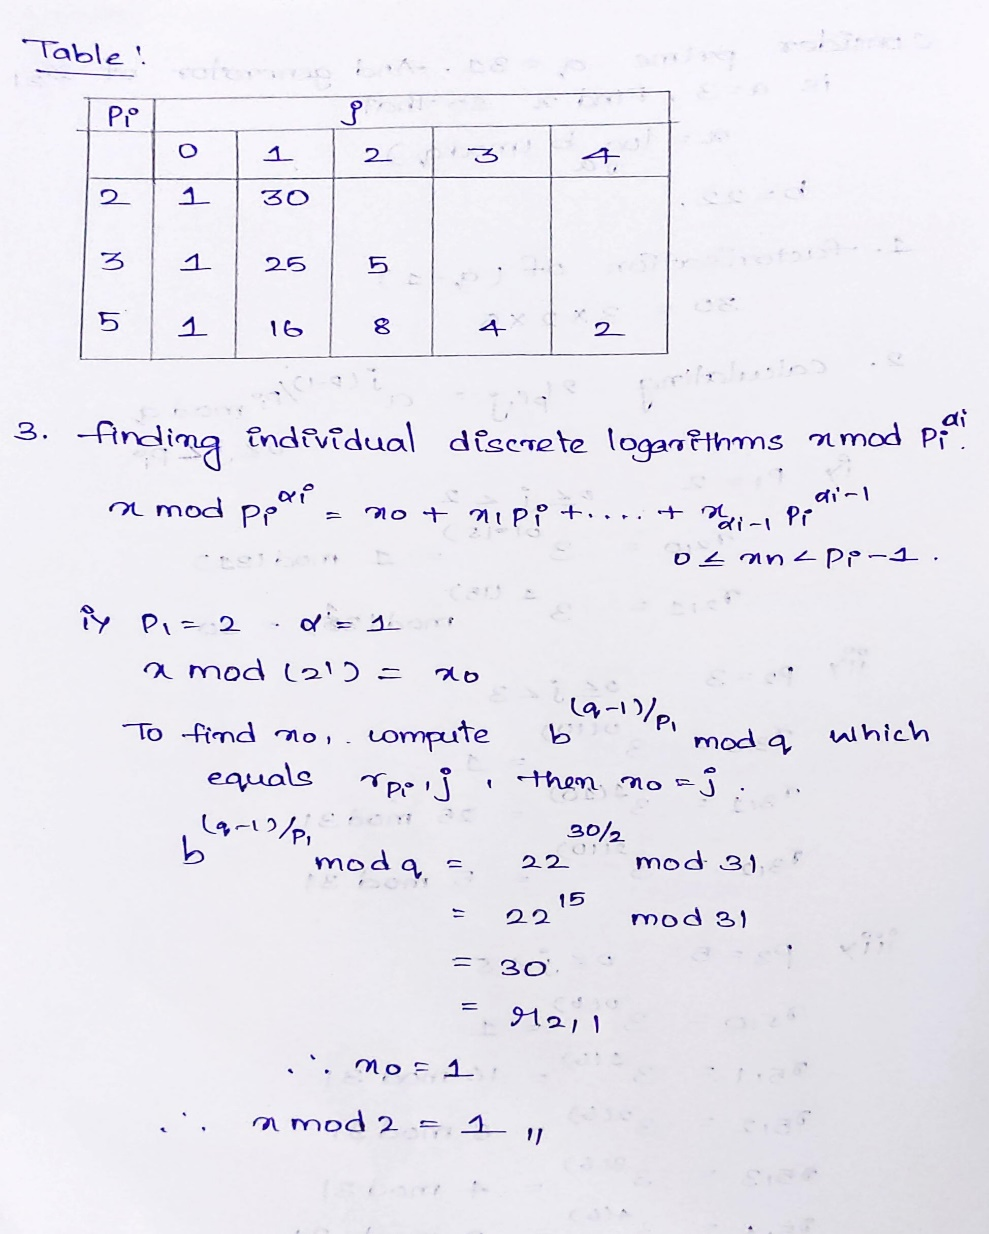 Table :
Pi j
0 1 2 3 4
2 1 30
3 1 25 5
5 1 16 8 4 2
3. finding individual discrete logarithms x mod pi^αi.
x mod pi^αi = x0 + x1 pi + .... + xαi-1 pi^αi-1
0 ≤ xn < pi-1 .
i) P1 = 2 . α = 1
x mod (2^1) = x0
To find x0, compute b^(q-1)/p1 mod q which
equals rpi,j , then x0 = j .
b^(q-1)/p1 mod q = 22^30/2 mod 31
= 22^15 mod 31
= 30
= r2,1
∴ x0 = 1
∴ x mod 2 = 1 //